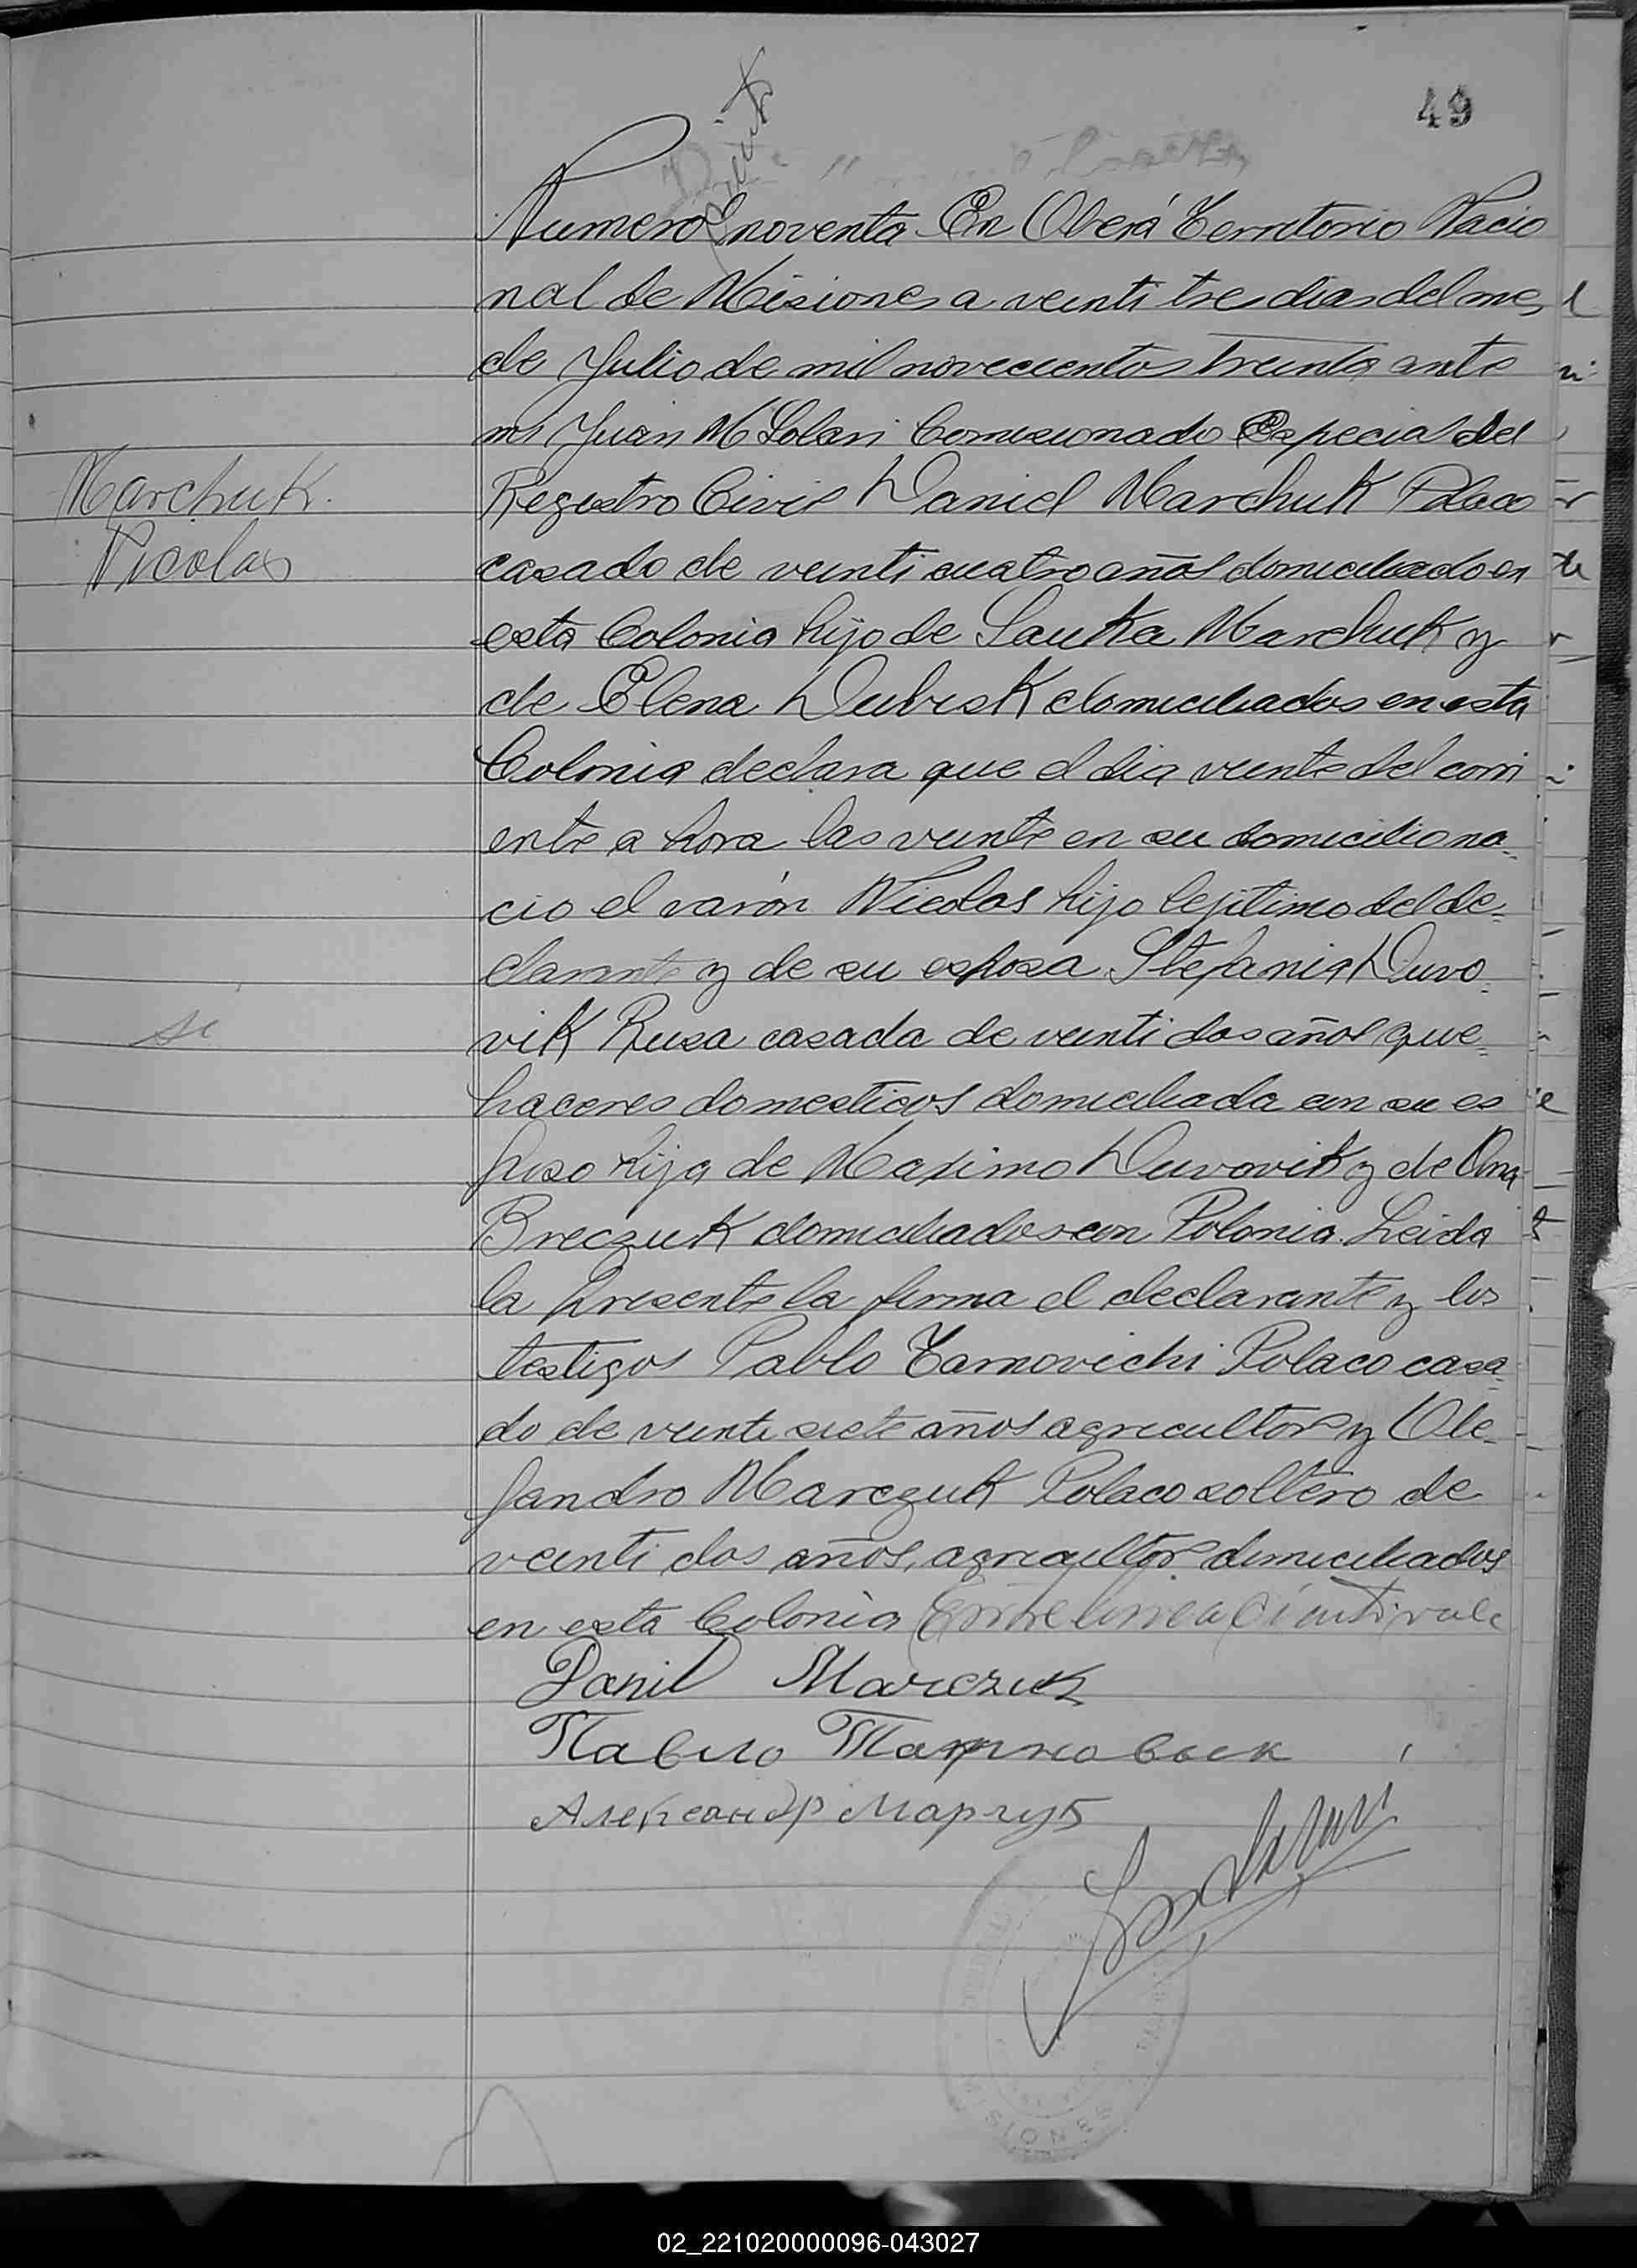 49
Numero noventa En Oberá Territorio Nacio
nal de Misiones a veinti tres dias del mes
de Julio de mil novecientos treinta ante
mi Juan M Solari Comisionado Especial del
Registro Civil Daniel Marchuk Polaco
Marchuk.
Nicolas
casado de veinti cuatro años domiciliado en
esta Colonia hijo de Sauka Marchuk y
de Elena Dubisk domiciliados en esta
Colonia declara que el dia veinte del corri
ente a hora las veinte en su domicilio na=
cio el varón Nicolas hijo lejitimo del de=
clarante y de su esposa Stefania Duvo=
vik Rusa casada de veinti dos años que=
haceres domesticos domiciliada con su es
poso hija de Maximo Duvovik y de Ana
Breczuk domiciliados en Polonia. Leida
la presente la firma el declarante y los
testigos Pablo Tarnovichi Polaco casa=
do de veinte siete años agricultor y Ale=
jandro Marczuk Polaco soltero de
veinti dos años, agricultor domiciliados
en esta Colonia Entre linea vale
Danil Marczuk
Павло
Александр Марчук
MISIONES
02_221020000096-043027